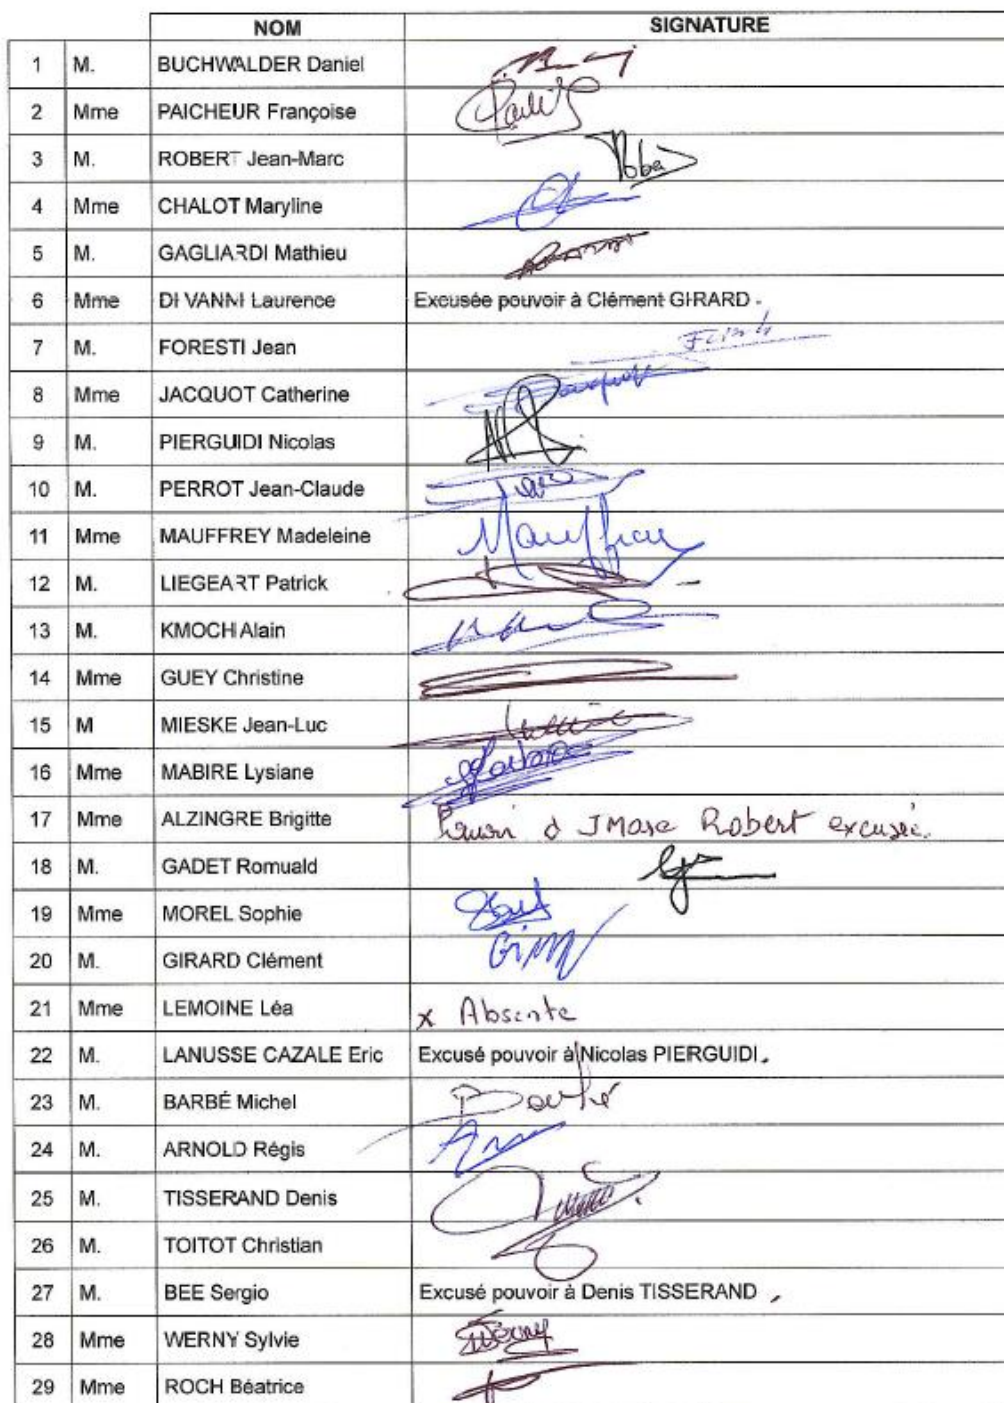 NOM SIGNATURE
1 M. BUCHWALDER Daniel
2 Mme PAICHEUR Françoise
3 M. ROBERT Jean-Marc
4 Mme CHALOT Maryline
5 M. GAGLIARDI Mathieu
6 Mme DI VANNI Laurence Excusée pouvoir à Clément GIRARD.
7 M. FORESTI Jean
8 Mme JACQUOT Catherine
9 M. PIERGUIDI Nicolas
10 M. PERROT Jean-Claude
11 Mme MAUFFREY Madeleine Mauffrey
12 M. LIEGEART Patrick
13 M. KMOCH Alain
14 Mme GUEY Christine
15 M MIESKE Jean-Luc
16 Mme MABIRE Lysiane
17 Mme ALZINGRE Brigitte JMarc Robert excusée.
18 M. GADET Romuald
19 Mme MOREL Sophie
20 M. GIRARD Clément
21 Mme LEMOINE Léa x Absente
22 M. LANUSSE CAZALE Eric Excusé pouvoir à Nicolas PIERGUIDI.
23 M. BARBÉ Michel Barbé
24 M. ARNOLD Régis
25 M. TISSERAND Denis
26 M. TOITOT Christian
27 M. BEE Sergio Excusé pouvoir à Denis TISSERAND
28 Mme WERNY Sylvie Werny
29 Mme ROCH Béatrice